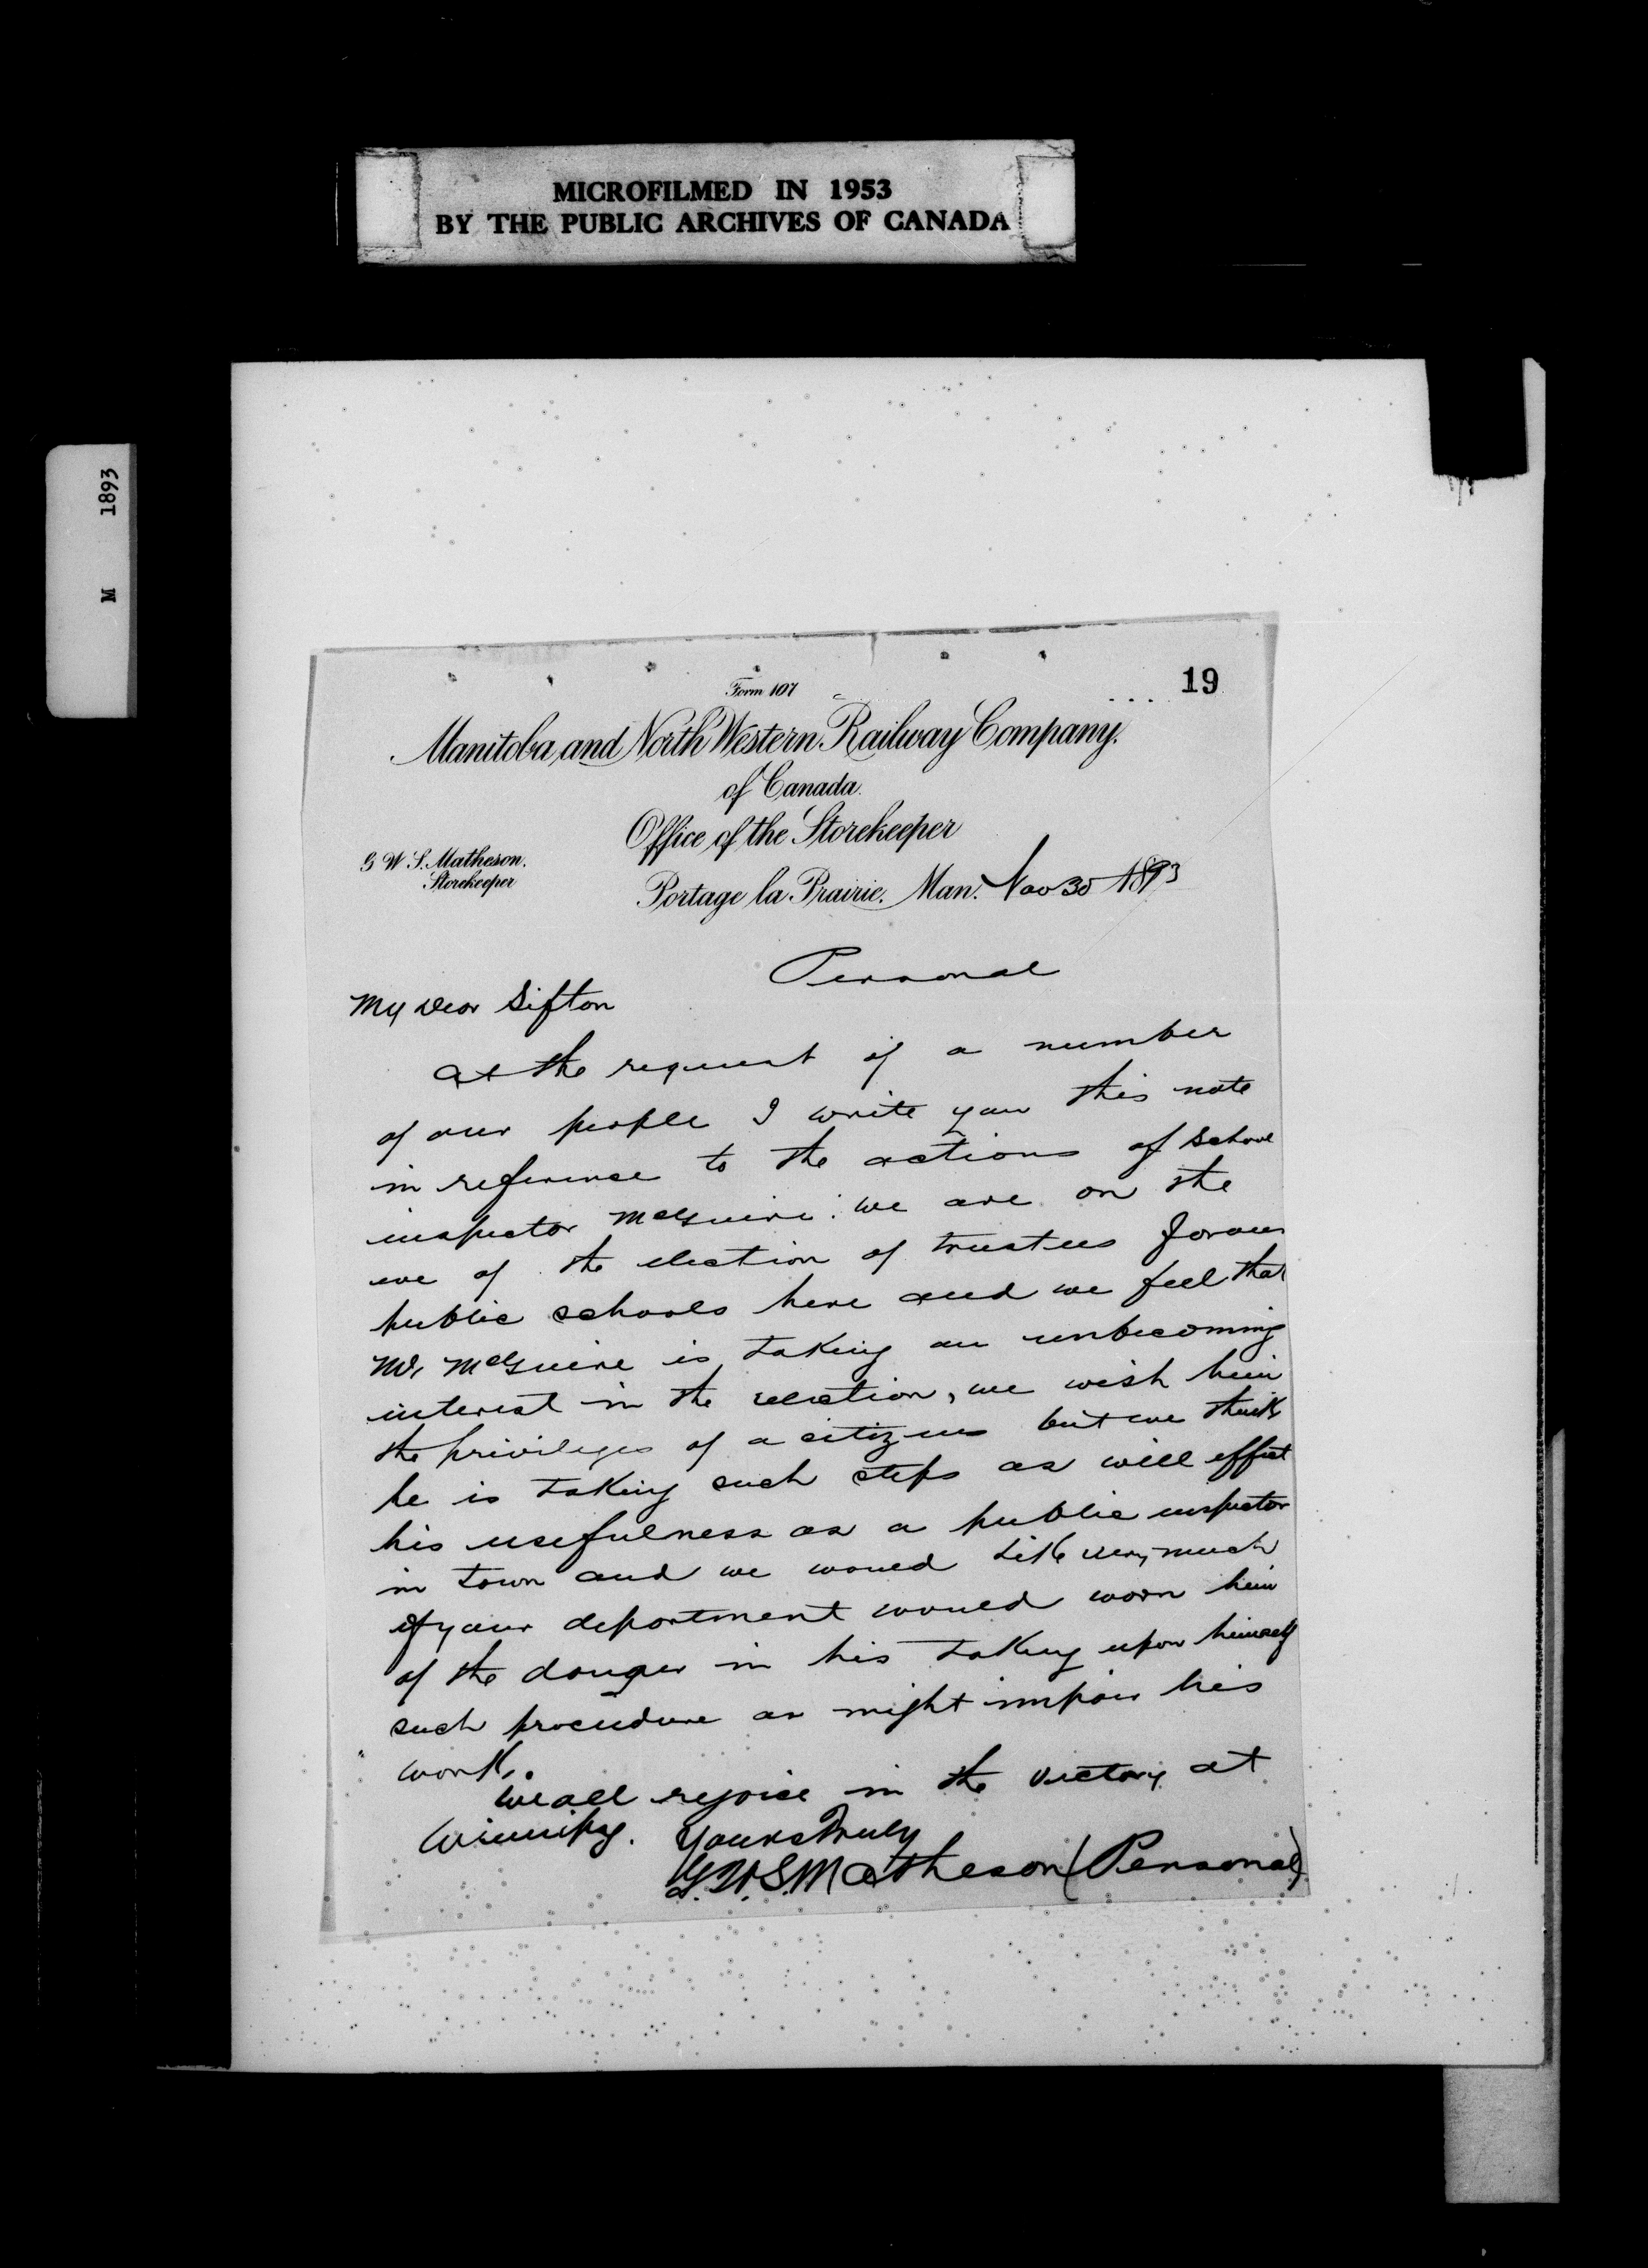 MICROFILMED IN 1953
BY THE PUBLIC ARCHIVES OF CANADA
M 1893
19
Form 107
Manitoba and North Western Railway Company.
of Canada.
Office of the Storekeeper
G W S. Matheson.
Storekeeper
Portage la Prairie. Man. Nov 30 1893
Personal
My Dear Sifton
At the request of a number
of our people I write you this note
in reference to the actions of school
inspector McGuire. we are on the
eve of the election of trustees for our
public schools here and we feel that
Mr McGuire is taking an unbecoming
interest in the election, we wish him
the privileges of a citizens but we think
he is taking such steps as will effect
his usefulness as a public inspector
in town and we would like very much
if your department would warn him
of the danger in his taking upon himself
such procedure as might impair his
work.
We all rejoice in the victory at
Winnipeg. Yours Truly
G.W.S. Matheson (Personal)